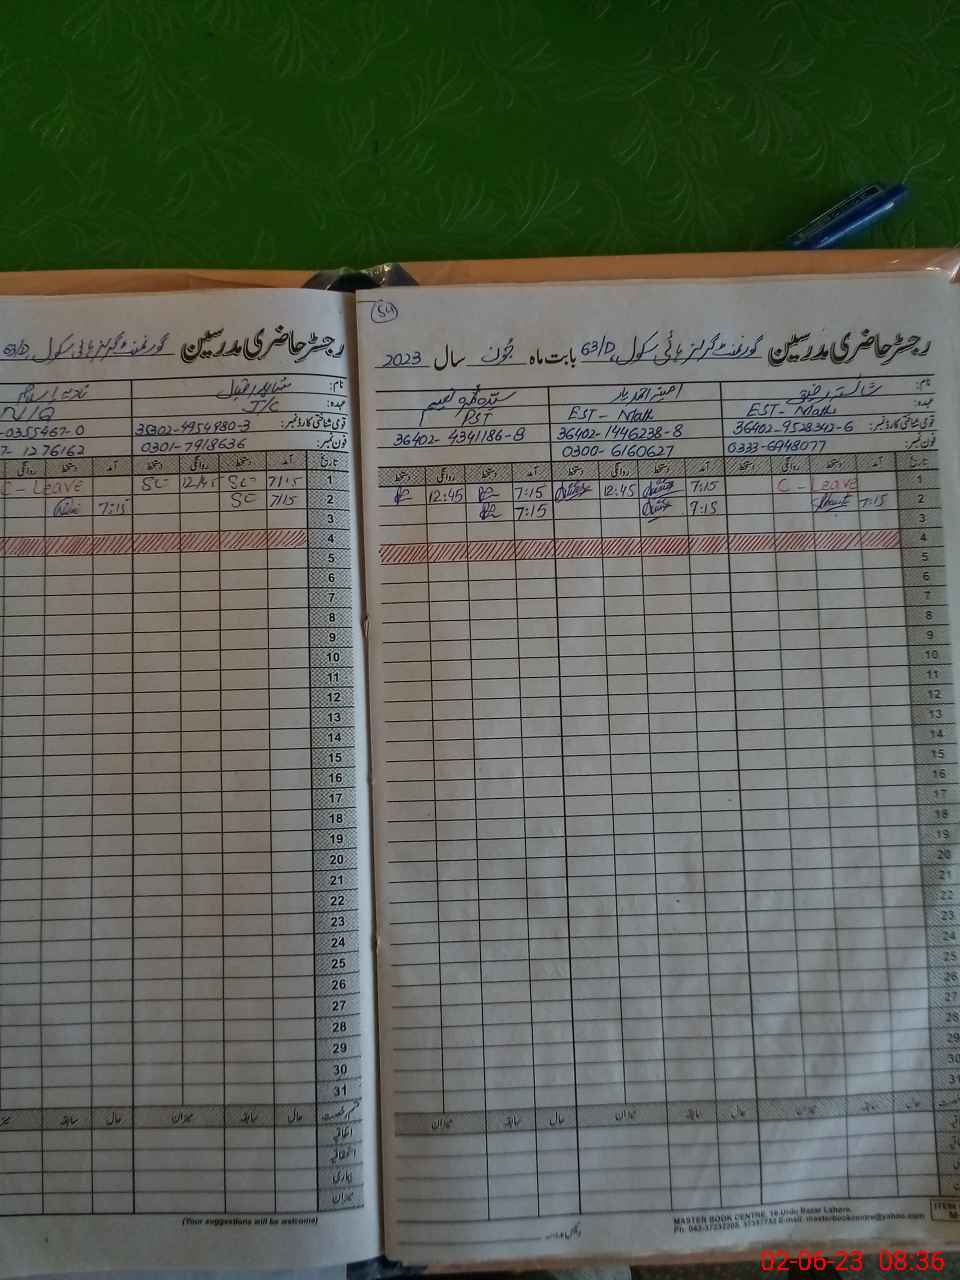 54
رجسٹر حاضری مدرسین گورنمنٹ گرلز ہائی سکول 63/D بابت ماہ جون سال 2023
نام: شائستہ رفیق
عہدہ: EST - Math EST - Math PST
قومی شناختی کارڈ نمبر: 36402-9528342-6 36402-1446238-8 36402-4341186-8
فون نمبر: 0333-6948077 0300-6160627
تاریخ آمد دستخط روانگی دستخط آمد دستخط روانگی دستخط آمد دستخط روانگی دستخط
1 C - Leave 7:15 12:45 7:15 12:45
2 7:15 7:15 7:15
3
4
5
6
7
8
9
10
11
12
13
14
15
16
17
18
19
20
21
22
23
24
25
26
27
28
29
30
31
حال سابقہ میزان حال سابقہ میزان حال سابقہ میزان
MASTER BOOK CENTRE, 16-Urdu Bazar Lahore.
Ph: 042-37232209, 37337732 E-mail: masterbookcentre@yahoo.com
رجسٹر حاضری مدرسین گورنمنٹ گرلز ہائی سکول 63/D
نام:
عہدہ: J/C N/Q
قومی شناختی کارڈ نمبر: 35302-4954930-3 -0355467-0
فون نمبر: 0301-7918636 7-1276162
تاریخ آمد دستخط روانگی دستخط آمد دستخط روانگی
1 7:15 SC 12:45 SC C-Leave
2 7:15 SC 7:15
3
4
5
6
7
8
9
10
11
12
13
14
15
16
17
18
19
20
21
22
23
24
25
26
27
28
29
30
31
قسم رخصت حال سابقہ میزان حال سابقہ
اتفاقیہ
استحقاقیہ
بیماری
میزان
(Your suggestions will be welcome)
02-06-23 08:36